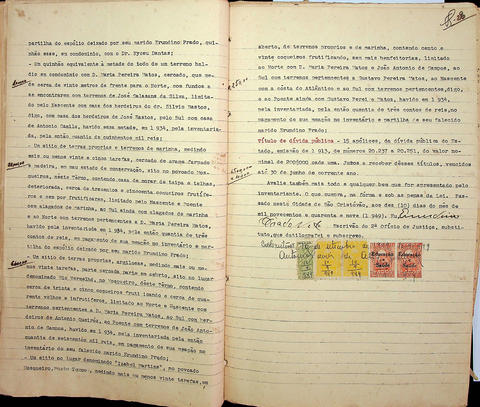 partilha do espólio deixado por seu marido Erundino Prado, qui-
nhão esse, em condomínio, com o Dr. Nyceu Dantas;
- Um quinhão equivalente à metade do todo de um terreno bal-
dio em condomínio com D. Maria Pereira Matos, cercado, que me-
de cerca de vinte metros de frente para o Norte, com fundos a
se encontrarem com terrenos de José Calasans da Silva, limita-
do pelo Nascente com casa dos herdeiros do dr. Silvio Bastos,
digo, com casa dos herdeiros de José Bastos, pelo Sul com casa
de Antonio Camilo, havido essa metade, em 1934, pela inventaria-
da, pela quantia de oitocentos mil reis;
- Um sitio de terras proprias e terrenos de marinha, medindo
mais ou menos vinte e cinco tarefas, cercado de arame farpado
e madeira, em mau estado de conservação, sito no povoado Mos-
queiro, deste Têrmo, contendo casa de morar de taipa e telhas,
deteriorada, cerca de trezentos e cincoenta coqueiros frutife-
ros e sem por frutificarem, limitado pelo Nascente e Poente
com alagados de marinha, ao Sul ainda com alagados de marinha
e ao Norte com terrenos pertencentes a D. Maria Pereira Matos,
havido pela inventariada em 1934, pela então quantia de três
contos de reis, em pagamento de sua meação no inventário e par-
tilha do espólio deixado por seu marido Erundino Prado;
- Um sitio de terras proprias, argilosas, medindo mais ou me-
nos vinte tarefas, parte cercada, parte em aberto, sito no lugar
denominado Rio Vermelho, no Mosqueiro, dêste Têrmo, contendo
cerca de trinta e cinco coqueiros frutificando e cerca de qua-
renta velhos e infrutiferos, limitado ao Norte e Nascente com
terrenos pertencentes a D. Maria Pereira Matos, ao Sul com her-
deiros de Antonio Queirós, ao Poente com terrenos de João Anto-
nio de Campos, havido em 1934, pela inventariada pela então
quantia de seiscentos mil reis, em pagamento de sua meação no
inventário de seu falecido marido Erundino Prado;
- Um sitio no lugar denominado "Izabel Martins", no povoado
Mosqueiro, dêste Termo, medindo mais ou menos vinte tarefas, em
aberto, de terrenos proprios e de marinha, contendo cento e
vinte coqueiros frutificando, sem mais benfeitorias, limitado
ao Norte com D. Maria Pereira Matos e João Antonio de Campos, ao
Sul com terrenos pertencentes a Gustavo Pereira Matos, ao Nascente
com a costa do Atlântico e ao Sul com terrenos pertencentes, digo,
e ao Poente ainda com Gustavo Pereira Matos, havido em 1934,
pela inventariada, pela então quantia de três contos de reis, no
pagamento de sua meação no inventário e partilha de seu falecido
marido Erundino Prado;
título de dívida pública - 15 apólices, da dívida pública do Es-
tado, emissão de 1913, números 20.237 a 20.251, do valor nomi-
nal de 200$000 cada uma. Juros a receber dêsses títulos, vencidos
até 30 de junho do corrente ano.
Avalie também mais todo e qualquer bem que for apresentado pelo
inventariante. O que cumpra, na forma e sob as penas da lei. Pas-
sado nesta Cidade de São Cristóvão, aos dez (10) dias do mez de
mil novecentos e quarenta e nove (1949).
Escrivão do 2º Ofício de Justiça, substi-
tuto, que datilografei e subscrevo.